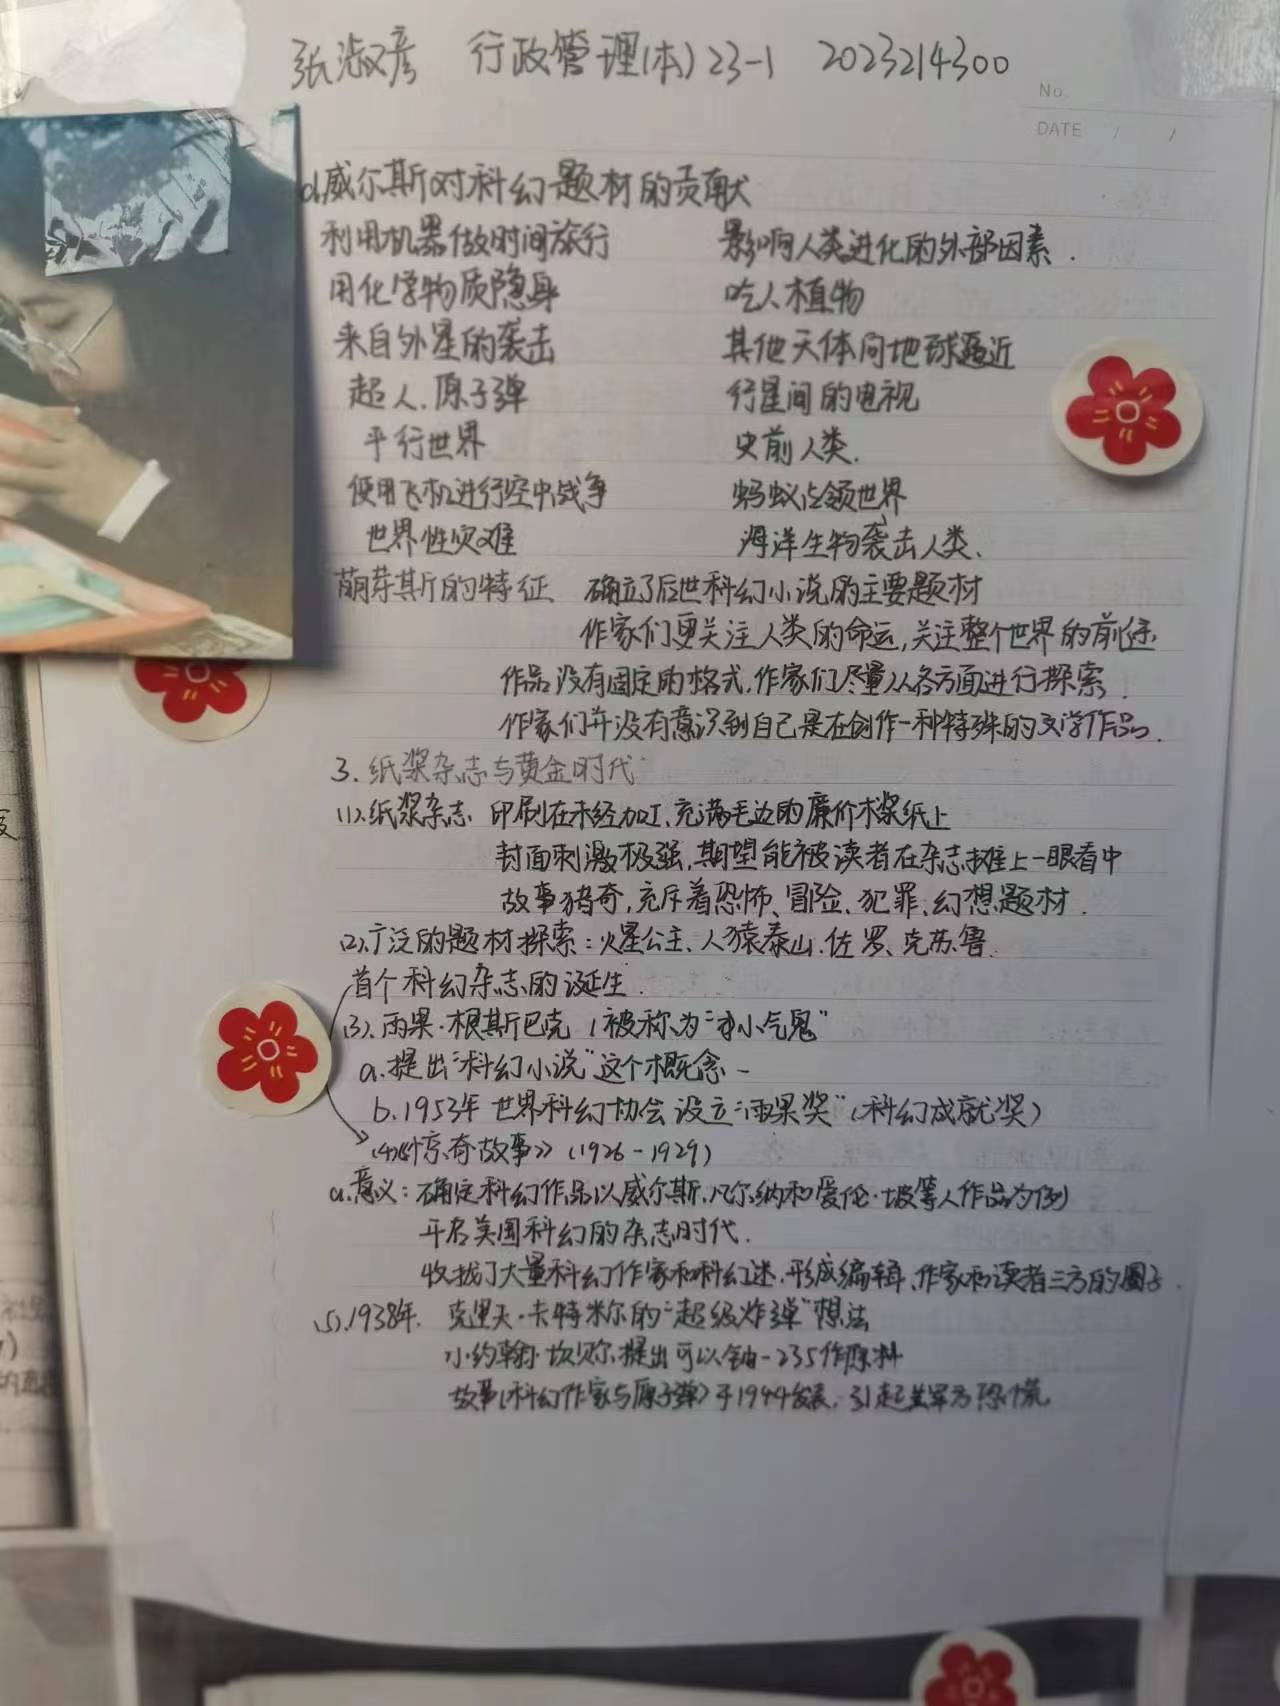 张淑彦 行政管理(本)23-1 2023214300
No.
DATE / /
d.威尔斯对科幻题材的贡献
利用机器做时间旅行 影响人类进化的外部因素.
用化学物质隐身 吃人植物
来自外星的袭击 其他天体向地球逼近
超人.原子弹 行星间的电视
平行世界 史前人类.
使用飞机进行空中战争 蚂蚁占领世界
世界性灾难 海洋生物袭击人类、
萌芽期的特征 确立了后世科幻小说的主要题材
作家们更关注人类的命运,关注整个世界的前途.
作品没有固定的格式,作家们尽量从各方面进行探索.
作家们并没有意识到自己是在创作一种特殊的文学作品.
3.纸浆杂志与黄金时代
(1).纸浆杂志 印刷在未经加工、充满毛边的廉价木浆纸上
封面刺激极强,期望能被读者在杂志摊上一眼看中
故事猎奇,充斥着恐怖、冒险、犯罪、幻想题材.
(2).广泛的题材探索:火星公主、人猿泰山.佐罗、克苏鲁.
首个科幻杂志的诞生.
(3).雨果·根斯巴克(被称为"小气鬼"
a.提出"科幻小说"这个概念
b.1953年 世界科幻协会设立"雨果奖"(科幻成就奖)
(4)《惊奇故事》(1926-1929)
a.意义:确定科幻作品以威尔斯,凡尔纳和爱伦·坡等人作品为例
开启美国科幻的杂志时代.
收拢了大量科幻作家和科幻迷,形成编辑、作家和读者三方的圈子.
(5).1938年. 克里夫·卡特米尔的"超级炸弹"想法
小约翰·坎贝尔提出可以铀-235作原料
故事(科幻作家与原子弹)于1944发表,引起美军方恐慌